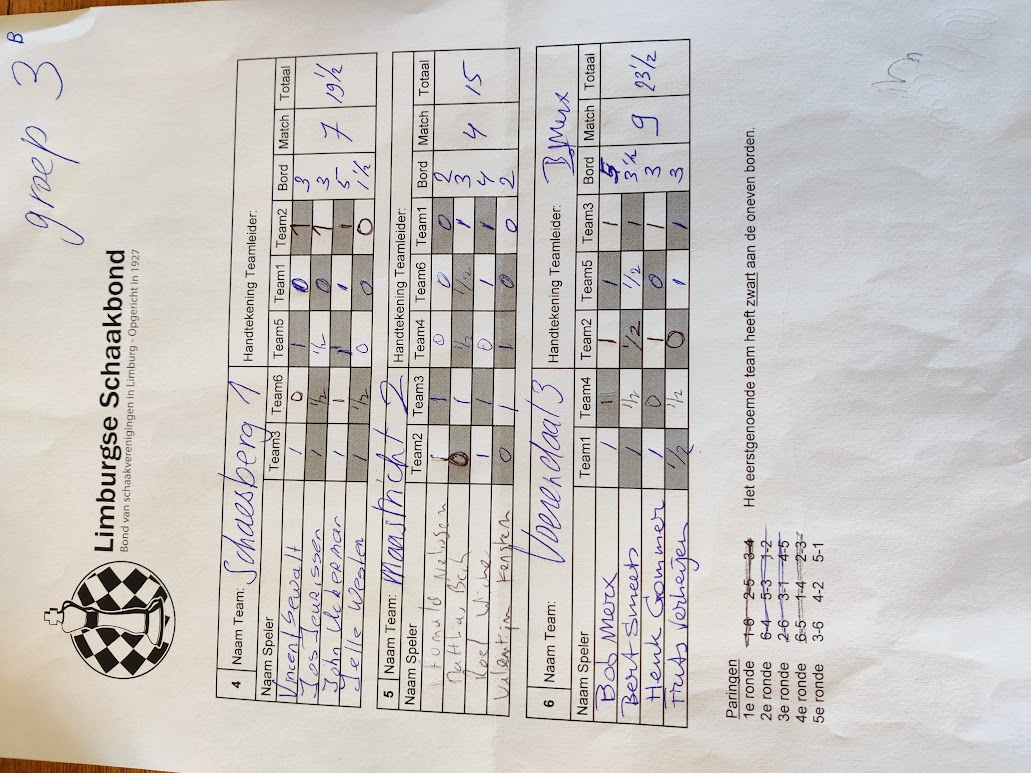 groep 3 B
Limburgse Schaakbond
Bond van schaakverenigingen in Limburg - Opgericht in 1927
4 Naam Team: Schaesberg 1 Handtekening Teamleider:
Naam Speler Team3 Team6 Team5 Team1 Team2 Bord Match Totaal
Vincent 1 0 1 0 1 3
Jos Jeurissen 1 1/2 1/2 0 1 3
John Uckerman 1 1 1 1 1 5 7 19 1/2
Jelle Westen 1 1/2 0 0 0 1 1/2
5 Naam Team: Maastricht 2 Handtekening Teamleider:
Naam Speler Team2 Team3 Team4 Team6 Team1 Bord Match Totaal
1 0 0 0 2
0 1 1/2 1/2 1 3
1 1 0 1 1 4 4 15
Valentijn 0 1 1 0 0 2
6 Naam Team: Voerendaal 3 Handtekening Teamleider: B Merx
Naam Speler Team1 Team4 Team2 Team5 Team3 Bord Match Totaal
Bob Merx 1 1 1 1 1 5
Bert Smeets 1 1/2 1/2 1/2 1 3 1/2
Henk Gommer 1 0 1 0 1 3 9 23 1/2
Huts Verheijen 1/2 1/2 0 1 1 3
Paringen
1e ronde 1-6 2-5 3-4 Het eerstgenoemde team heeft zwart aan de oneven borden.
2e ronde 6-4 5-3 1-2
3e ronde 2-6 3-1 4-5
4e ronde 6-5 1-4 2-3
5e ronde 3-6 4-2 5-1